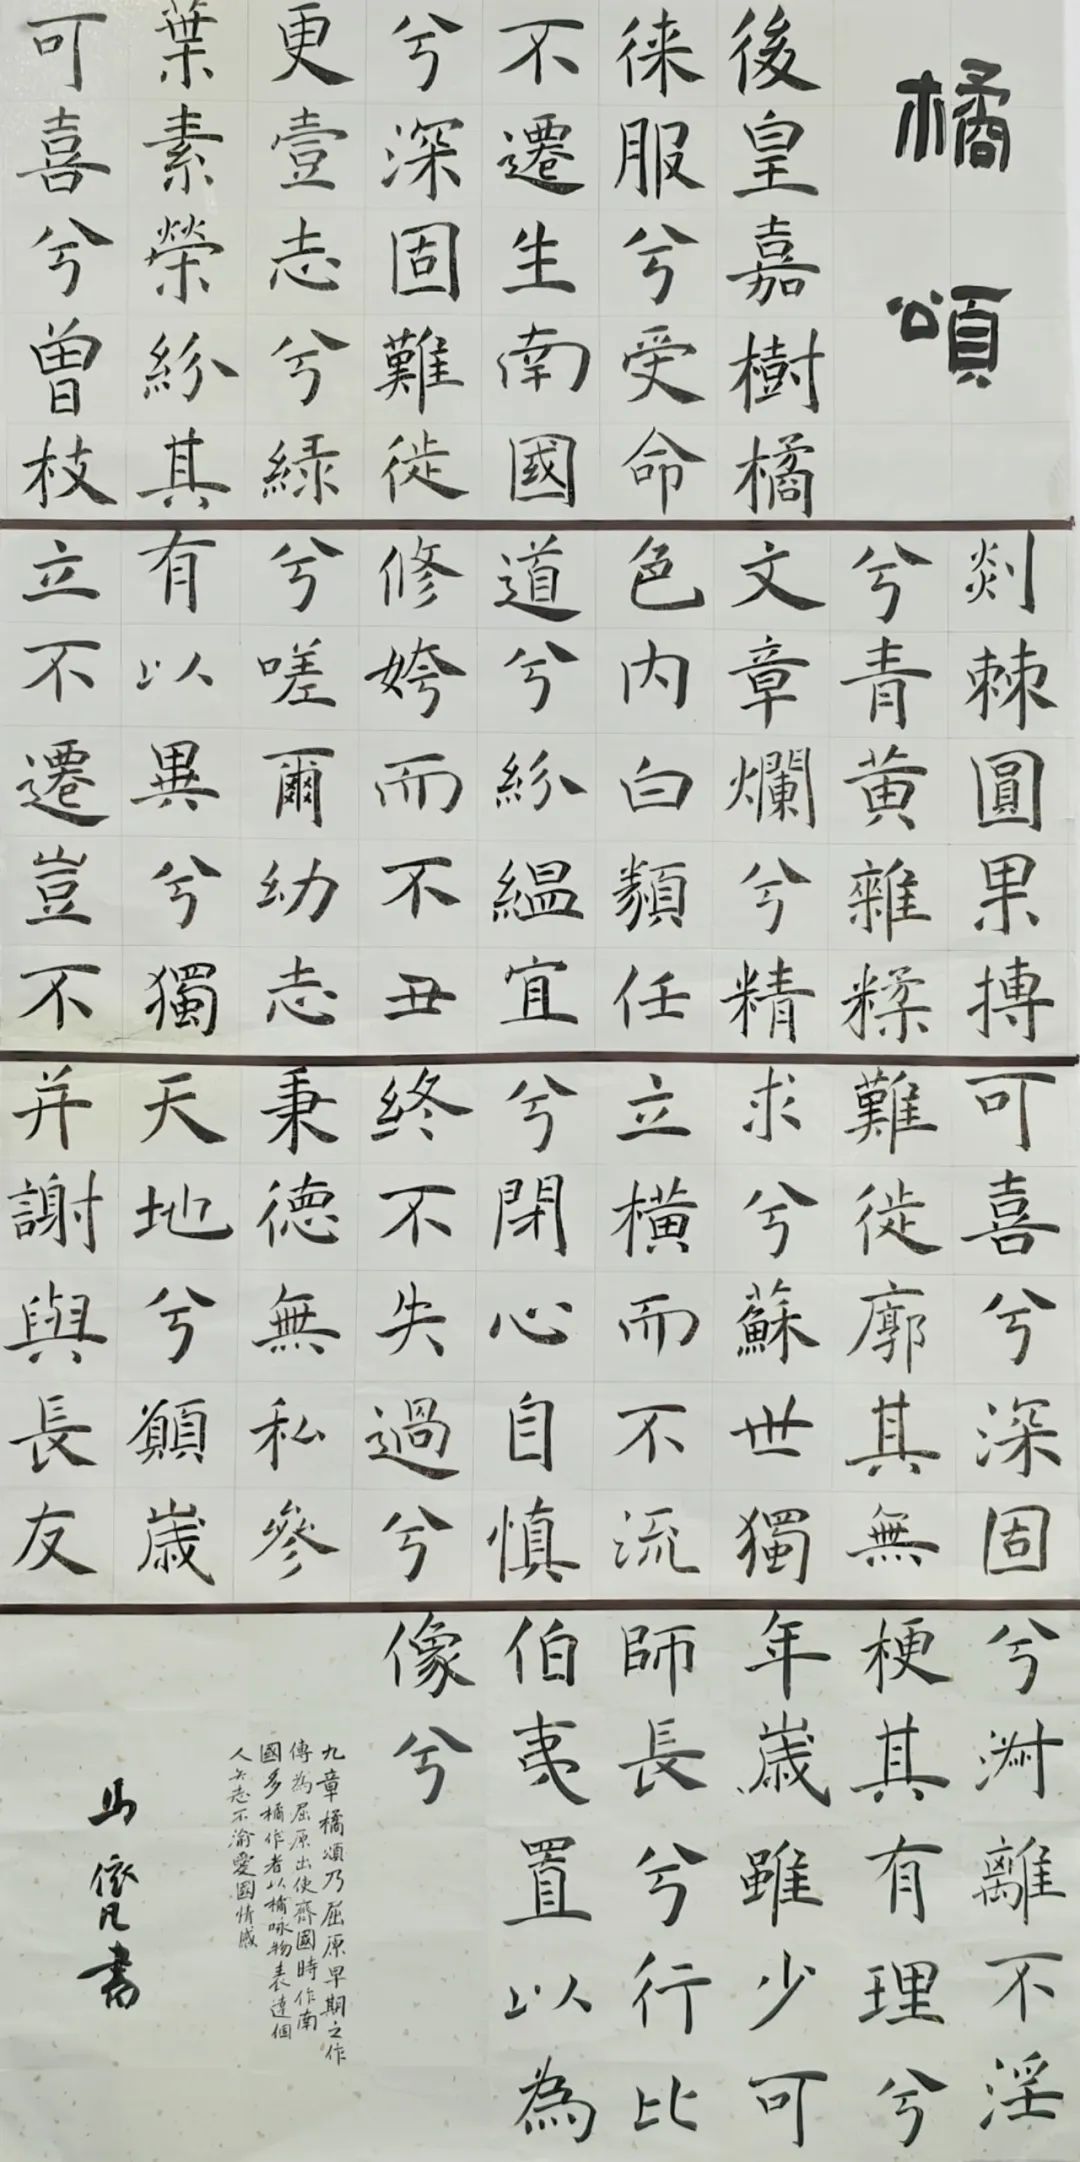 橘頌
後皇嘉樹橘
徠服兮受命
不遷生南國
兮深固難徙
更壹志兮緑
葉素榮紛其
可喜兮曾枝
剡棘圓果摶
兮青黄雜糅
文章爛兮精
色内白類任
道兮紛緼宜
修姱而不丑
兮嗟爾幼志
有以異兮獨
立不遷豈不
可喜兮深固
難徙廓其無
求兮蘇世獨
立横而不流
兮閉心自慎
終不失過兮
秉德無私參
天地兮願歲
并謝與長友
兮淑離不淫
梗其有理兮
年歲雖少可
師長兮行比
伯夷置以為
像兮
九章橘頌乃屈原早期之作
傳為屈原出使齊國時作南
國多橘作者以橘咏物表達個
人矢志不渝愛國情感
馬 凡書